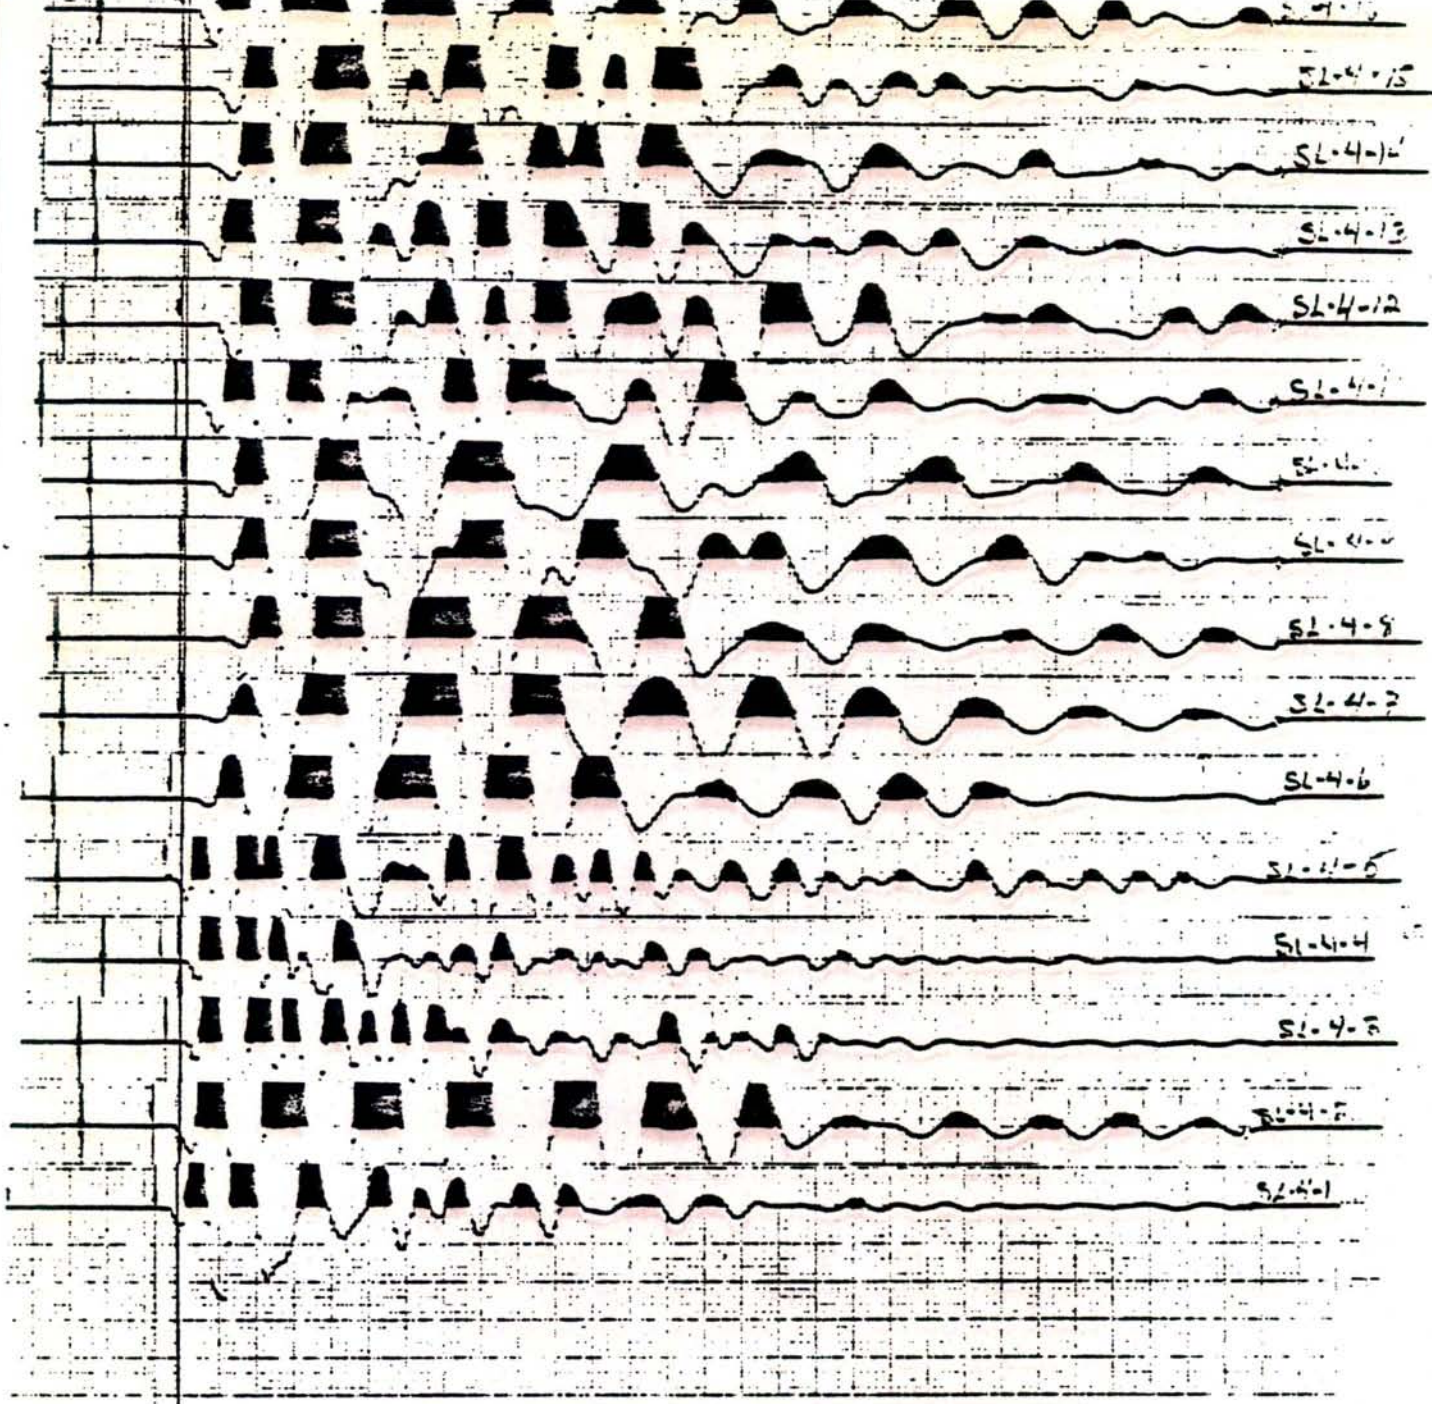 SL-4-15
SL-4-14
SL-4-13
SL-4-12
SL-4-8
SL-4-7
SL-4-6
SL-4-5
SL-4-4
SL-4-3
SL-4-2
SL-4-1